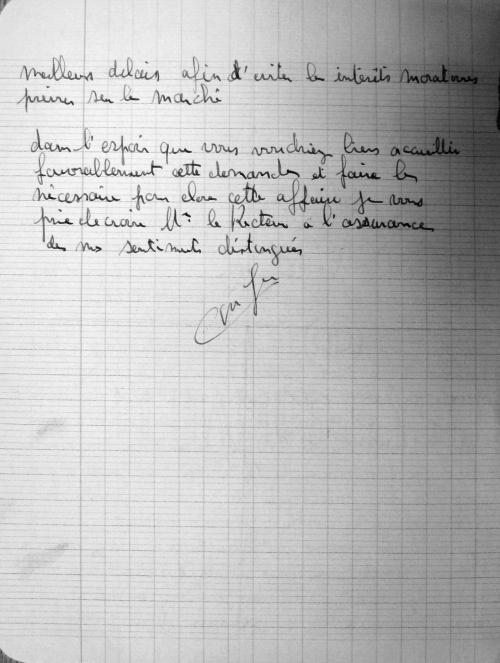 meilleurs delais afin d'eviter les intérêts moratoires
prévus sur le marché
dans l'espoir que vous voudriez bien accueillir
favorablement cette demande et faire le
nécessaire pour clore cette affaire je vous
prie de croire Mr le Recteur à l'assurance
de nos sentiments distingués